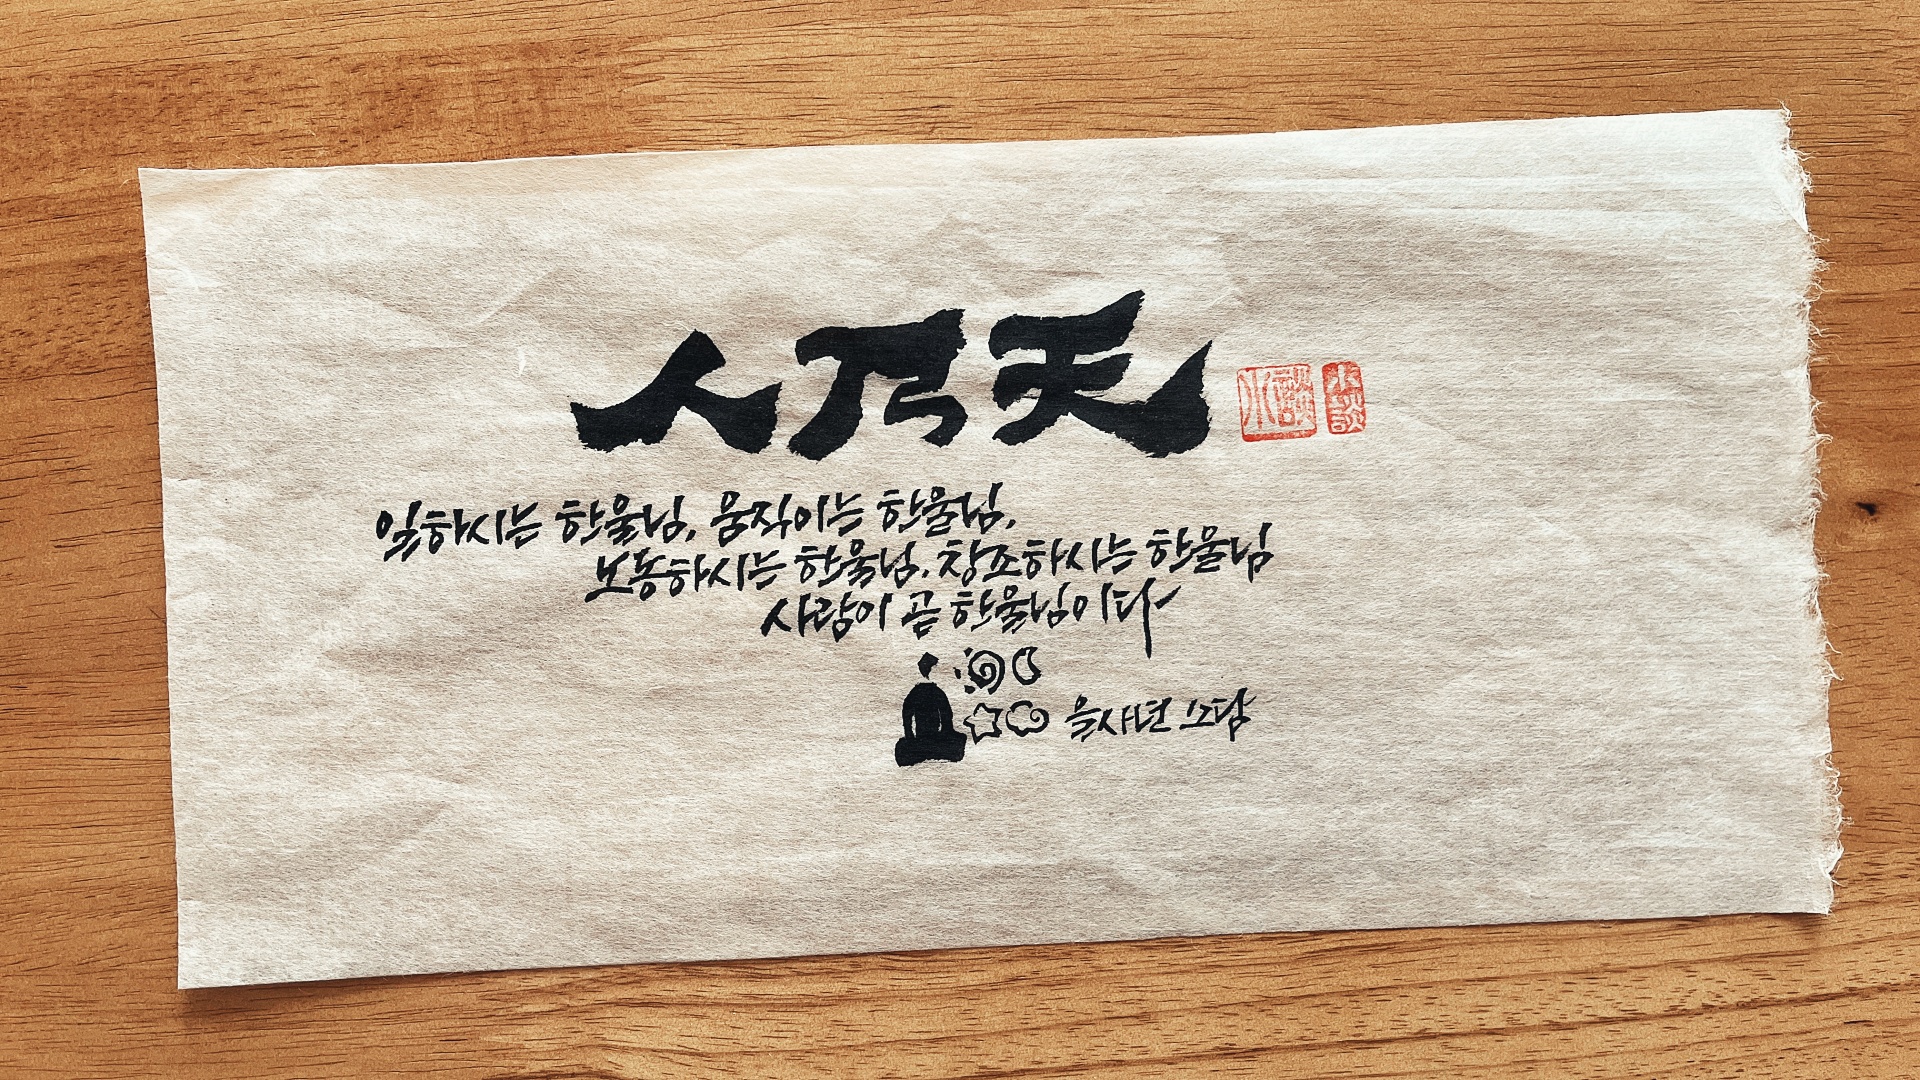 人乃天
小談 小談
일하시는 한울님, 움직이는 한울님,
노동하시는 한울님, 창조하시는 한울님
사람이 곧 한울님이다
을사년 소담